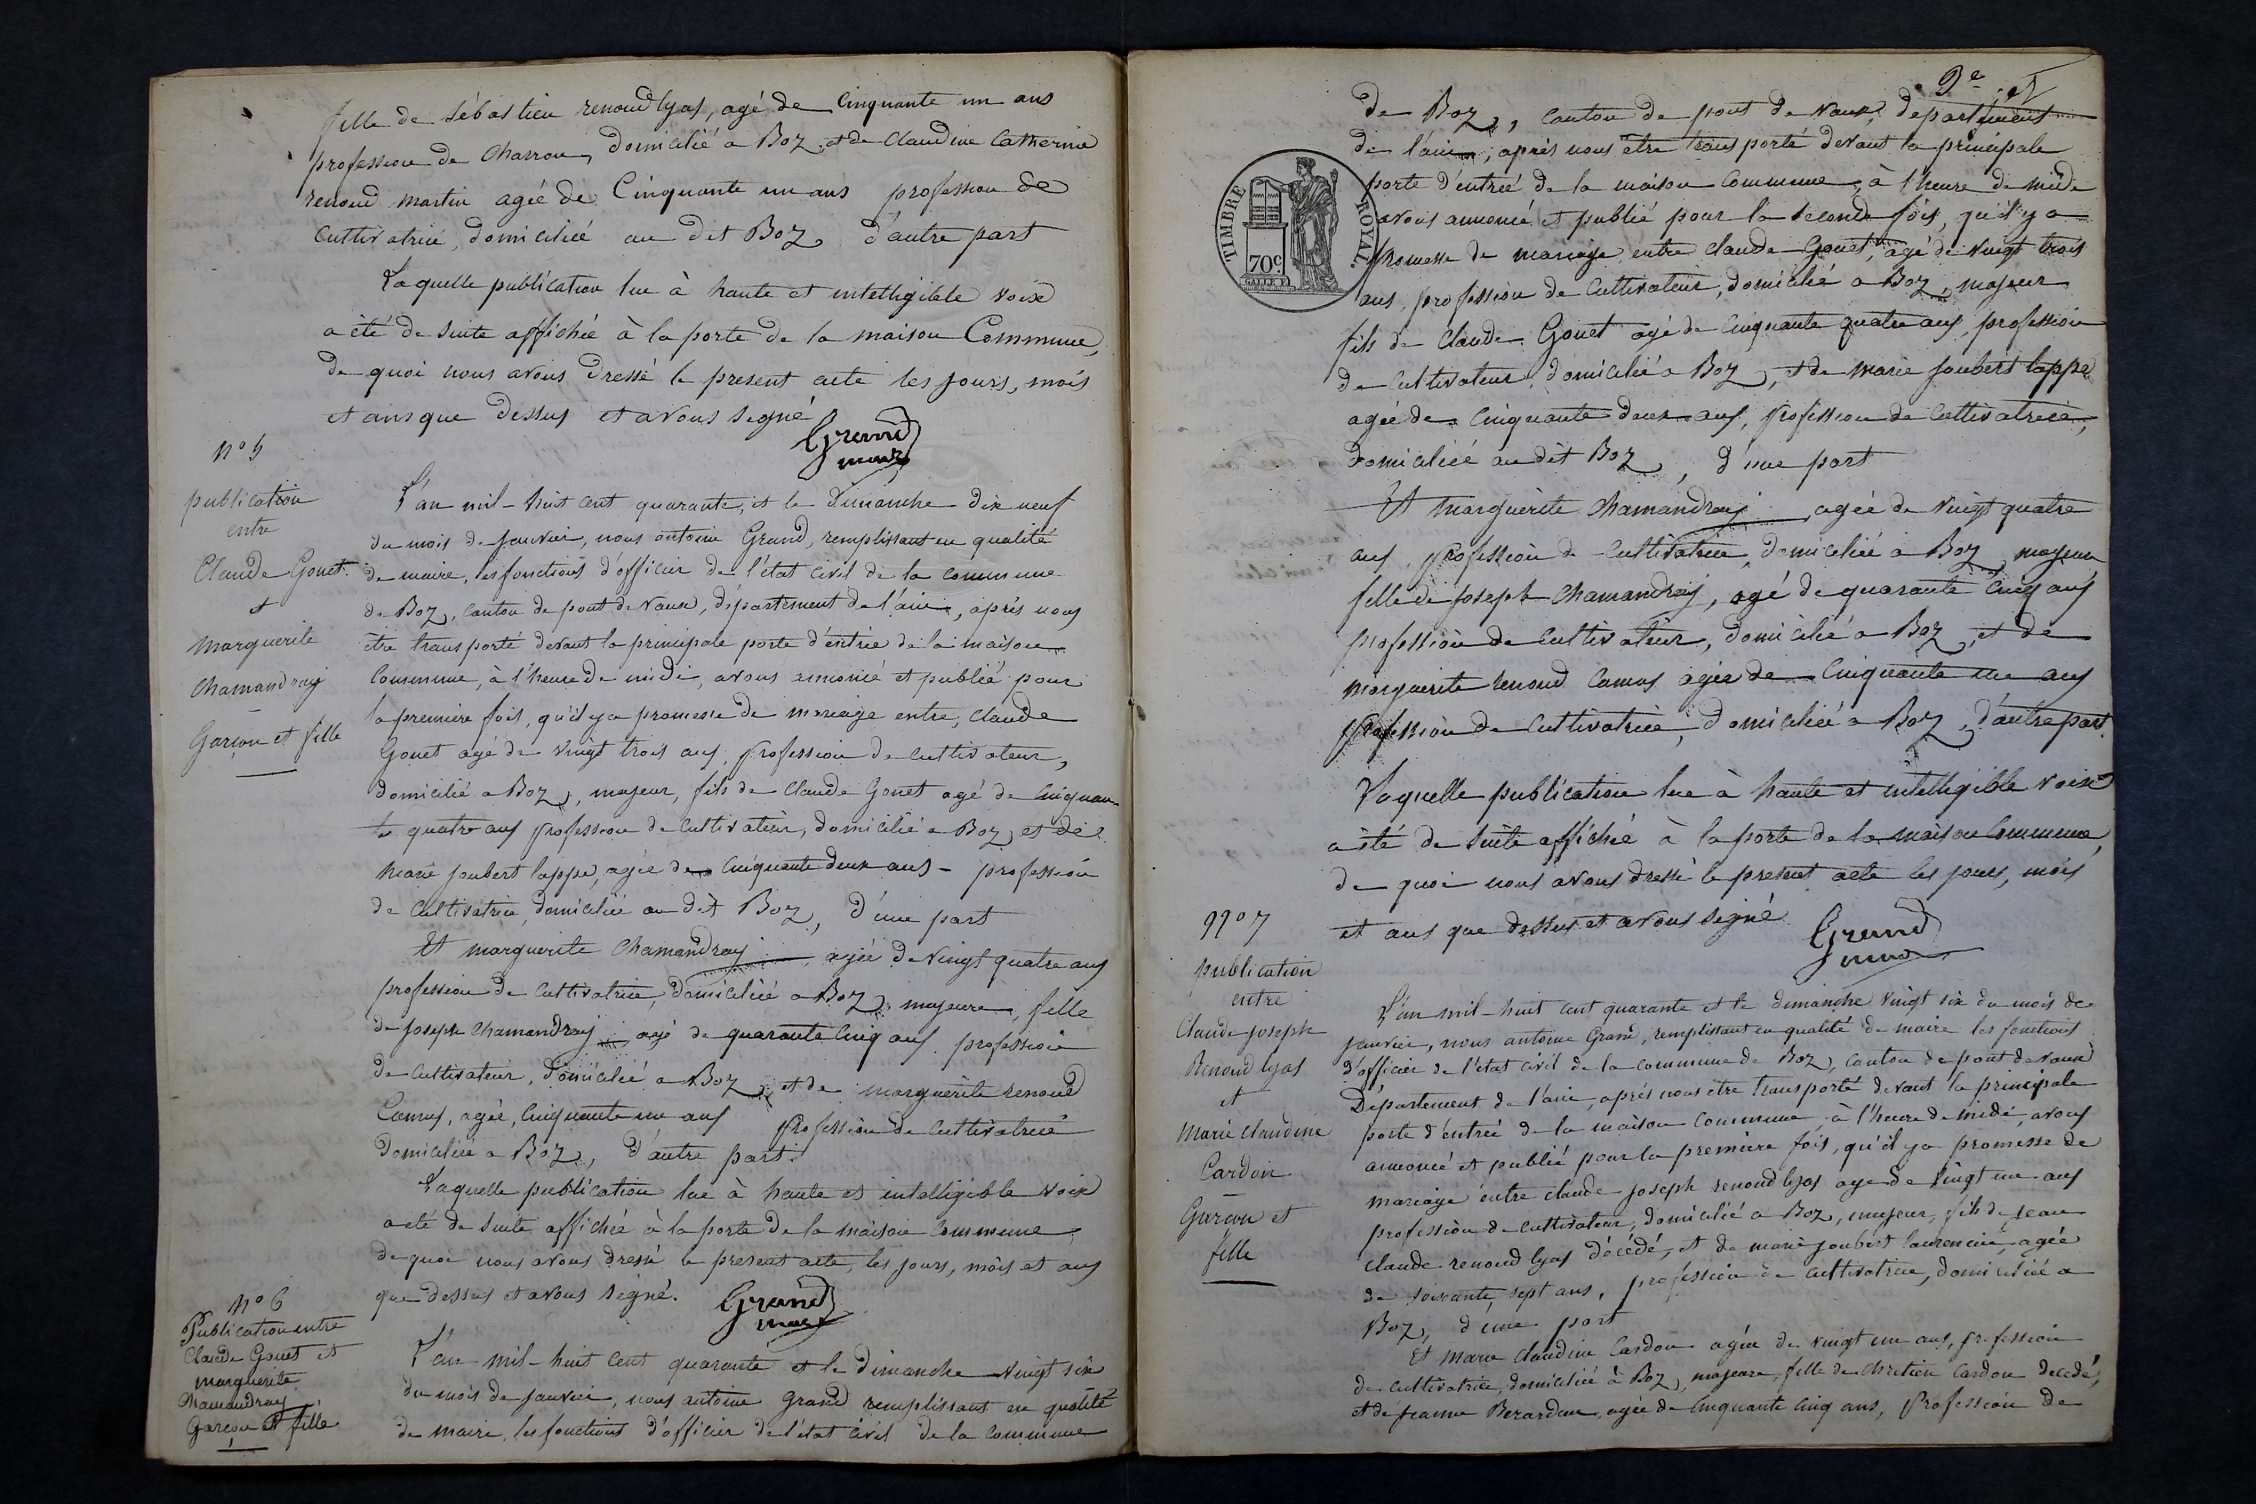 fille de Sébastien renoud lyas, agé de Cinquante un ans
profession de Charron, domicilié a Boz, et de Claudine Catherine
renoud martin agée de Cinquante un ans profession de
Cultivatrice, domiciliée au dit Boz, d'autre part
Laquelle publication lue à haute et intelligible voix
a été de suite affichée à la porte de la maison Commune,
de quoi nous avons dressé le present acte les jours, mois
et ans que dessus et avons signé
Grand
maire
n° 5
publication
entre
Claude Gonet
et
Marguerite
Chamandray
Garçon et fille
L'an mil-huit cent quarante, et le dimanche dix neuf
du mois de janvier, nous antoine Grand, remplissant en qualité
de maire, les fonctions d'officier de l'état civil de la commune
de Boz, canton de pont de vaux, département de l'ain, après nous
être transporté devant la principale porte d'entrée de la maison
Commune, à l'heure de midi, avons annoncé et publié pour
la première fois, qu'il y a promesse de mariage entre, Claude
Gonet agé de vingt trois ans, profession de cultivateur,
domicilié a Boz, majeur, fils de Claude Gonet agé de Cinquan-
te quatre ans profession de Cultivateur, domicilié a Boz, et de
Marie joubert lappe, agée de Cinquante deux ans - profession
de Cultivatrice, domiciliée au dit Boz, d'une part
Et marguerite Chamandray, agée de vingt quatre ans
profession de Cultivatrice, domiciliée a Boz, majeure, fille
de joseph Chamandray agé de quarante Cinq ans profession
de Cultivateur, domicilié a Boz, et de marguerite renoud
Camus, agée, Cinquante un ans profession de Cultivatrice
domiciliée a Boz, d'autre part.
Laquelle publication lue à haute et intelligible voix
a été de suite affichée à la porte de la maison Commune,
de quoi nous avons dressé le present acte, les jours, mois et ans
que dessus et avons signé.
Grand
maire
n° 6
Publication entre
Claude Gonet et
marguerite
Chamandray
Garçon et fille
L'an mil-huit cent quarante et le dimanche vingt six
du mois de janvier, nous antoine Grand remplissant en qualité
de maire, les fonctions d'officier de l'état civil de la commune
de Boz, canton de pont de vaux, département
de l'ain, après nous être transporté devant la principale
porte d'entrée de la maison Commune, à l'heure de midi
avons annoncé et publié pour la seconde fois, qu'il y a
promesse de mariage entre Claude Gonet, agé de vingt trois
ans, profession de Cultivateur, domicilié a Boz, majeur
fils de Claude Gonet agé de Cinquante quatre ans, profession
de Cultivateur, domicilié a Boz, et de Marie joubert lappe
agée de Cinquante deux ans, profession de Cultivatrice,
domiciliée au dit Boz, d'une part
Et marguerite Chamandray, agée de vingt quatre
ans, profession de Cultivatrice, domiciliée a Boz, majeure
fille de joseph Chamandray, agé de quarante Cinq ans
profession de Cultivateur, domicilié a Boz, et de
marguerite renoud Camus agée de Cinquante un ans
profession de Cultivatrice, domiciliée a Boz, d'autre part.
Laquelle publication lue à haute et intelligible voix
a été de suite affichée à la porte de la maison Commune,
de quoi nous avons dressé le present acte les jours, mois
et ans que dessus et avons signé
Grand
maire
TIMBRE ROYAL
70c
n° 7
publication
entre
Claude joseph
Renoud lyas
et
Marie Claudine
Cardon
Garçon et
fille
L'an mil-huit cent quarante et le dimanche vingt six du mois de
janvier, nous antoine Grand, remplissant en qualité de maire les fonctions
d'officier de l'état civil de la commune de Boz, canton de pont de vaux
Département de l'ain, après nous être transporté devant la principale
porte d'entrée de la maison commune, à l'heure de midi, avons
annoncé et publié pour la première fois, qu'il y a promesse de
mariage entre Claude joseph renoud lyas agé de vingt un ans
profession de cultivateur, domicilié a Boz, majeur, fils de jean
claude renoud lyas décédé, et de marie joubert laurencin, agée
de soixante sept ans, profession de cultivatrice, domiciliée a
Boz, d'une part
Et Marie Claudine Cardon agée de vingt un ans, profession
de Cultivatrice, domiciliée à Boz, majeure, fille de chretien Cardon décédé,
et de jeanne Berardan, agée de Cinquante Cinq ans, profession de